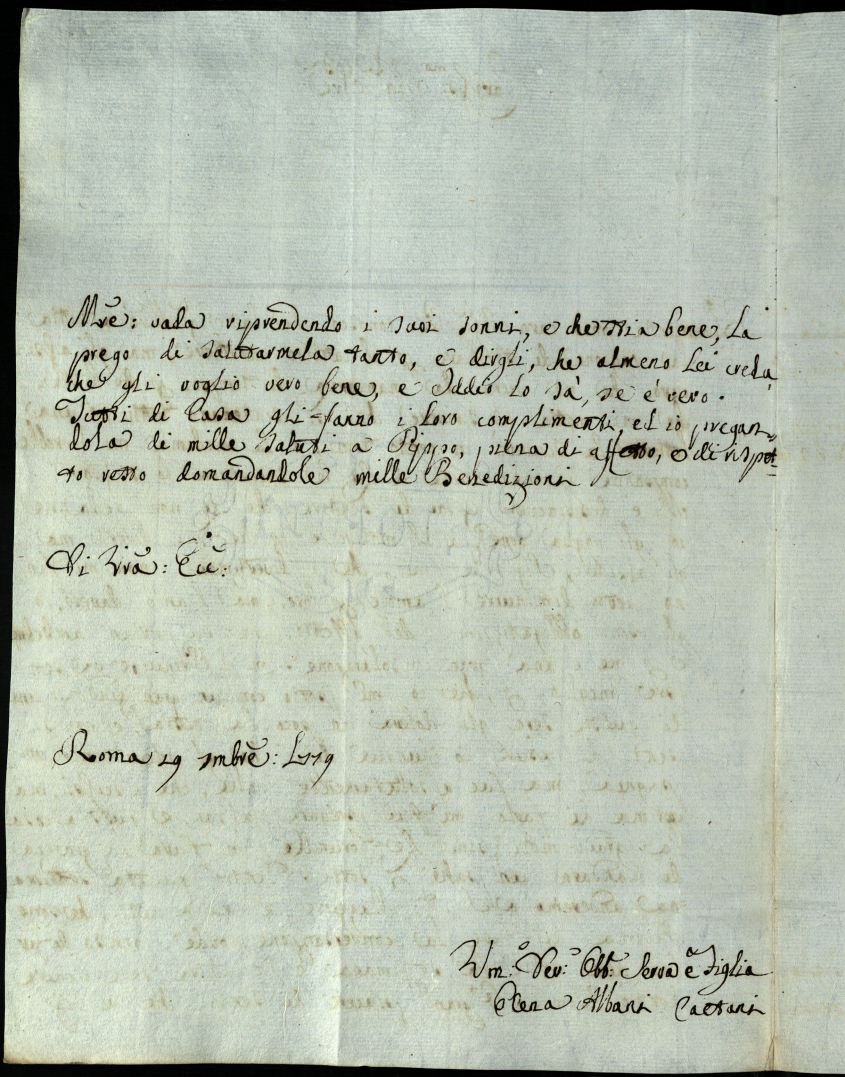 Mrẽ: vada riprendendo i suoi sonni, e che stia bene, La
prego di salutarmela tanto, e dirgli, che almeno Lei creda,
che gli voglio vero bene, e Iddio Lo sà, se è vero.
Tutti di Casa gli fanno i Loro complimenti, ed io pregan=
dola di mille saluti a Pippo, piena di affetto, e di rispet=
to resto domandandole mille Benedizioni
Di Vrã: Ecc̃:
Roma 29 Mbrẽ: 1779
Um.° Dev.° Obb.° Serva e Figlia
Elena Albani Caetani